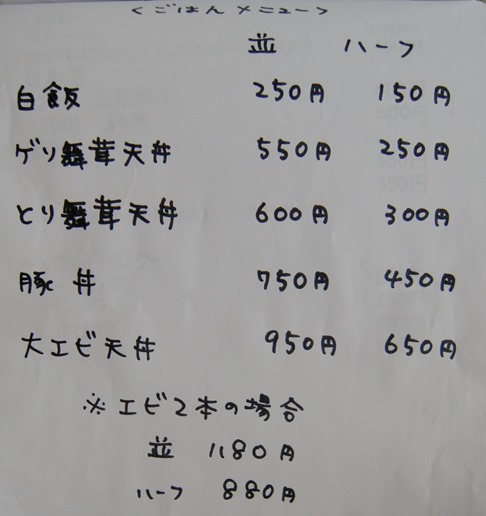 ＜ごはんメニュー＞
並 ハーフ
白飯 250円 150円
ゲソ舞茸天丼 550円 250円
とり舞茸天丼 600円 300円
豚丼 750円 450円
大エビ天丼 950円 650円
※エビ2本の場合
並 1180円
ハーフ 880円